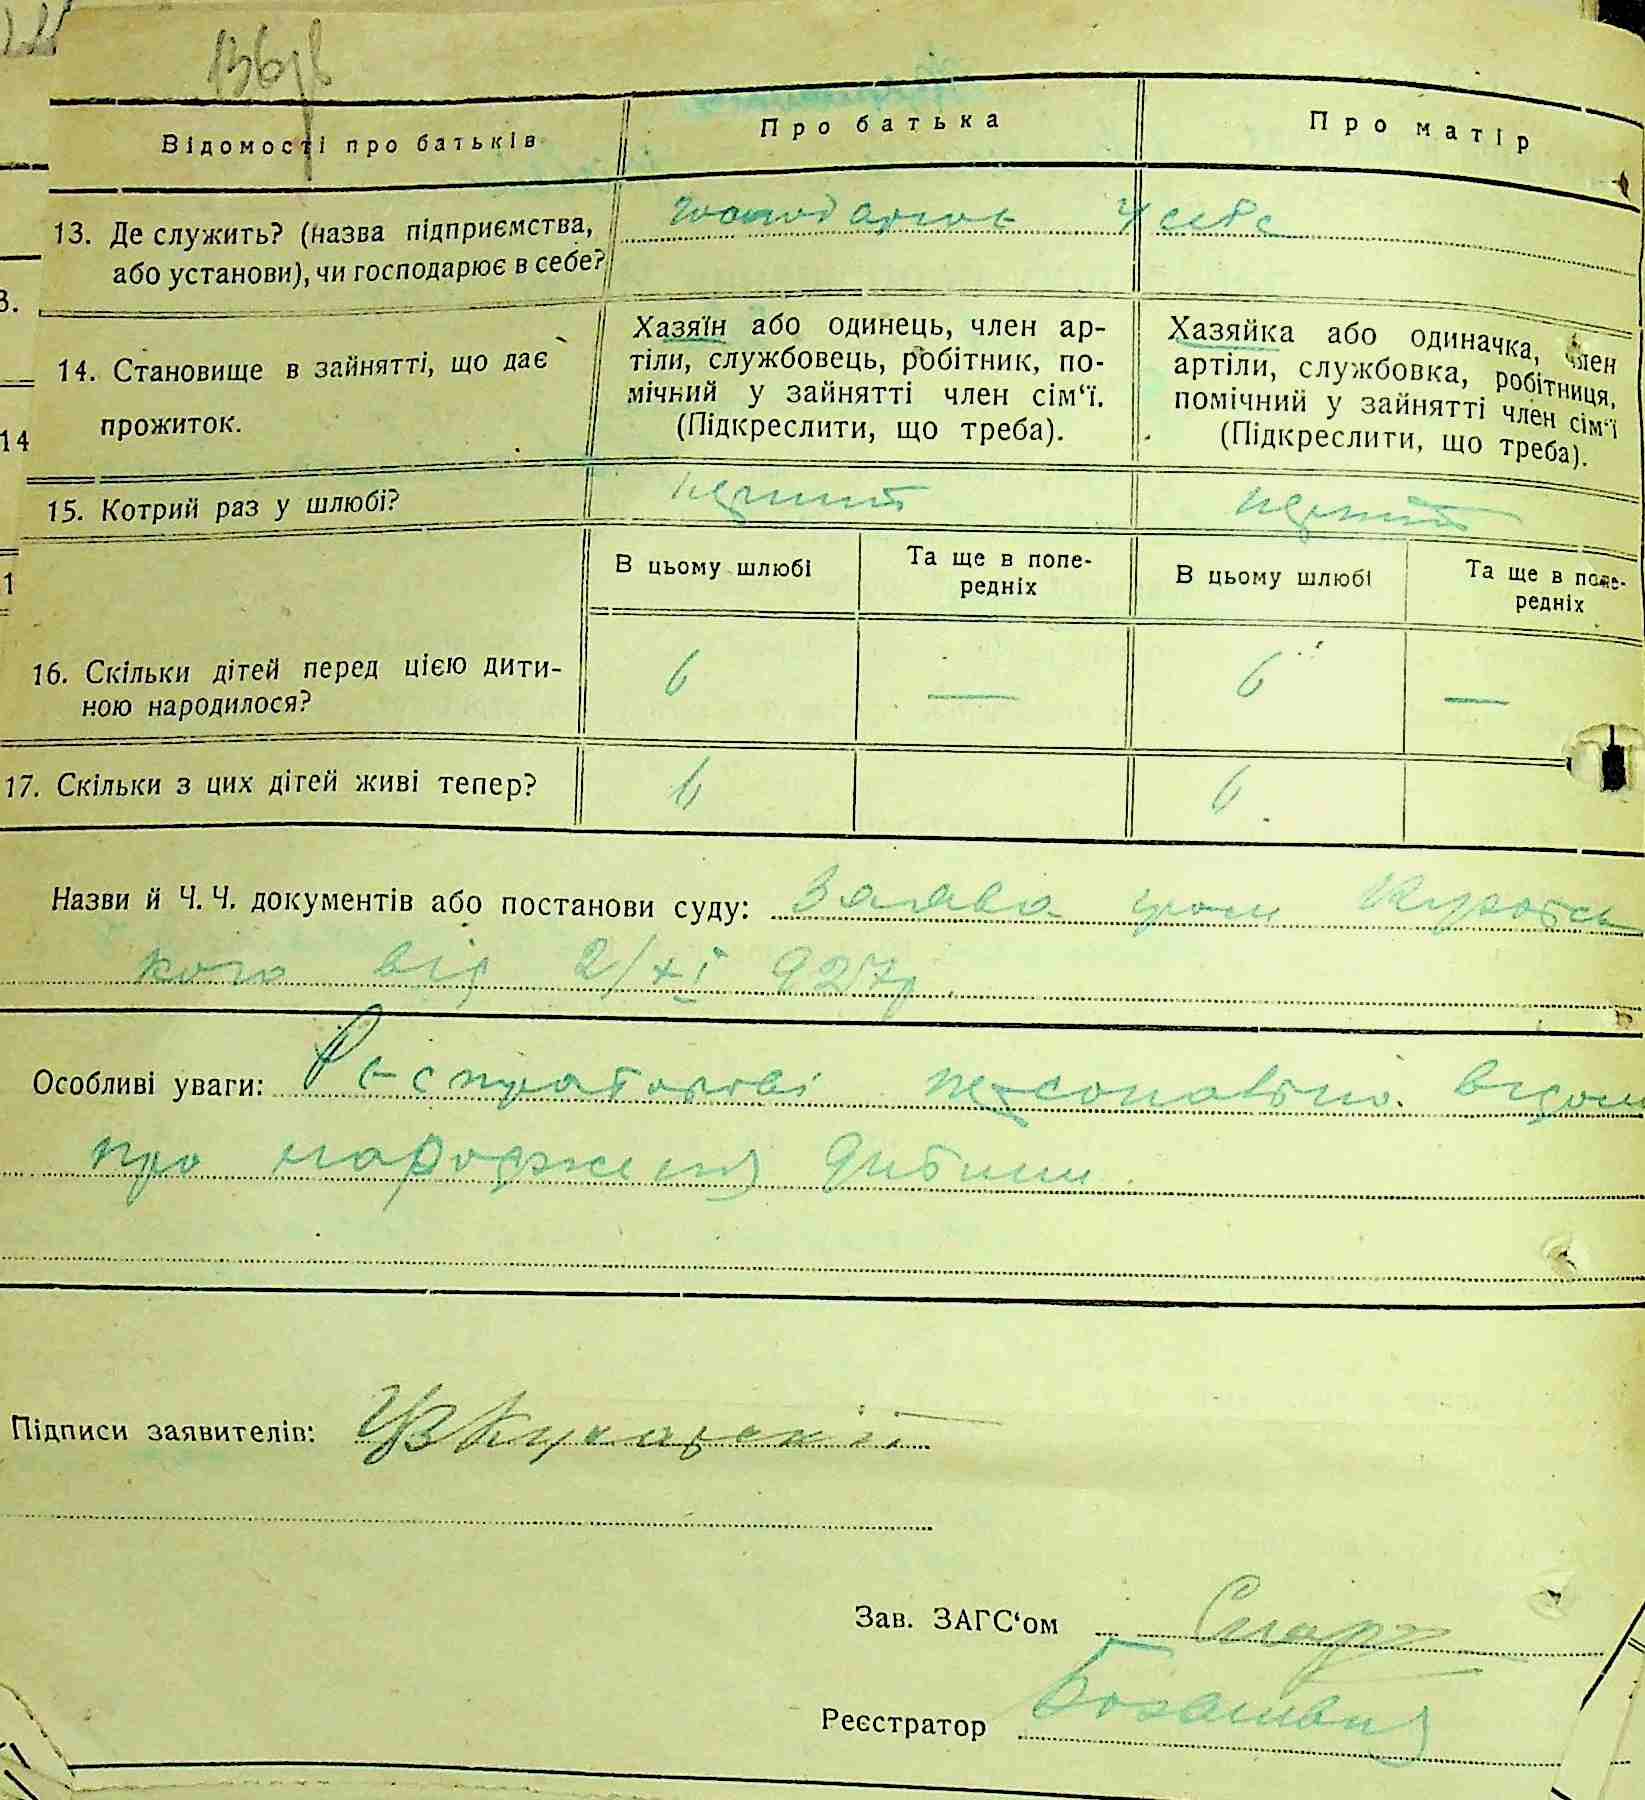 Відомості про батьків
Про батька
Про матір
13. Де служить? (назва підприємства,
або установи), чи господарює в себе?
у себе
14. Становище в зайнятті, що дає
прожиток.
Хазяїн або одинець, член ар-
тіли, службовець, робітник, по-
мічний у зайнятті член сім‘ї.
(Підкреслити, що треба).
Хазяйка або одиначка, член
артіли, службовка, робітниця,
помічний у зайнятті член сім‘ї
(Підкреслити, що треба).
15. Котрий раз у шлюбі?
перший
перший
В цьому шлюбі
Та ще в попе-
редніх
В цьому шлюбі
Та ще в попе-
редніх
16. Скільки дітей перед цією дити-
ною народилося?
6
—
6
—
17. Скільки з цих дітей живі тепер?
6
6
Назви й Ч. Ч. документів або постанови суду: Заява гром
кого від 2/XI 927р.
Особливі уваги: персонально відомо
про народження дитини.
Підписи заявителів:
Зав. ЗАГС‘ом
Реєстратор